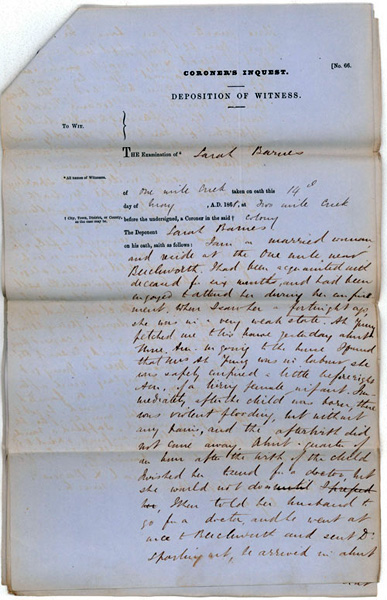 [No. 66.
CORONER'S INQUEST.
DEPOSITION OF WITNESS.
To Wit.
THE Examination of* Sarah Barnes
*All names of Witnesses.
of One mile Creek taken on oath this 19th
day of May , A.D. 186 , at Two mile Creek
† City, Town, District, or County, as the case may be.
before the undersigned, a Coroner in the said† Colony
The Deponent Sarah Barnes
on his oath, saith as follows: I am a married woman
and reside at the One mile near
Beechworth. I had been acquainted with
deceased for six months, and had been
engaged to attend her during her confine
ment. When I saw her a fortnight ago
she was in a very weak state. Ah
fetched me to his house yesterday
. On going to the house I found
that Mrs Ah was in labour she
was safely confined a little before eight
, of a living female infant. Im
mediately after the child was born, there
was violent flooding, but without
any pain, and the afterbirth did
not come away. About quarter of
an hour after the birth of the child
I wished her to send for a doctor, but
she would not
. I then told her husband to
go for a doctor, and he went at
once to Beechworth and sent Dr
Sparling out, he arrived in about